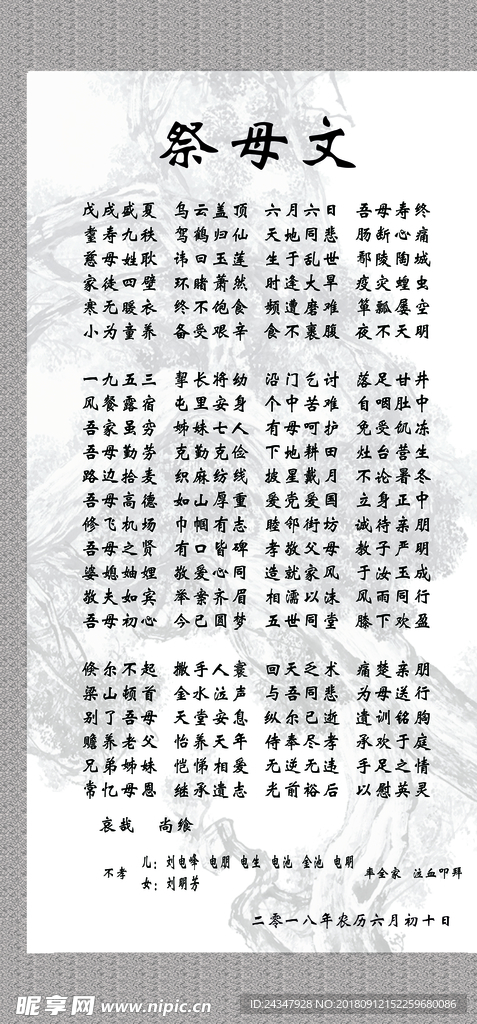 祭母文
戊戌盛夏 乌云盖顶 六月六日 吾母寿终
耋寿九秩 驾鹤归仙 天地同悲 肠断心痛
慈母姓耿 讳曰玉莲 生于乱世 鄢陵陶城
家徒四壁 环睹萧然 时逢大旱 疫灾蝗虫
寒无暖衣 终不饱食 频遭磨难 箪瓢屡空
小为童养 备受艰辛 食不裹腹 夜不天明
一九五三 挈长将幼 沿门乞讨 落足甘井
风餐露宿 屯里安身 个中苦难 自咽肚中
吾家虽穷 姊妹七人 有母呵护 免受饥冻
吾母勤劳 克勤克俭 下地耕田 灶台营生
路边拾麦 织麻纺线 披星戴月 不论署冬
吾母高德 如山厚重 爱党爱国 立身正中
修飞机场 巾帼有志 睦邻街坊 诚待亲朋
吾母之贤 有口皆碑 孝敬父母 教子严明
婆媳妯娌 敬爱心同 造就家风 于汝玉成
敬夫如宾 举案齐眉 相濡以沫 风雨同行
吾母初心 今已圆梦 五世同堂 膝下欢盈
倏尔不起 撒手人寰 回天乏术 痛楚亲朋
梁山顿首 金水泣声 与吾同悲 为母送行
别了吾母 天堂安息 纵尔已逝 遗训铭胸
赡养老父 怡养天年 侍奉尽孝 承欢于庭
兄弟姊妹 恺悌相爱 无逆无违 手足之情
常忆母恩 继承遗志 光前裕后 以慰英灵
哀哉 尚飨
不孝 儿：刘电峰 电朋 电生 电池 金池 电明 率全家 泣血叩拜
女：刘明芳
二零一八年农历六月初十日
昵享网 www.nipic.cn
ID:24347928 NO:20180912152259680086